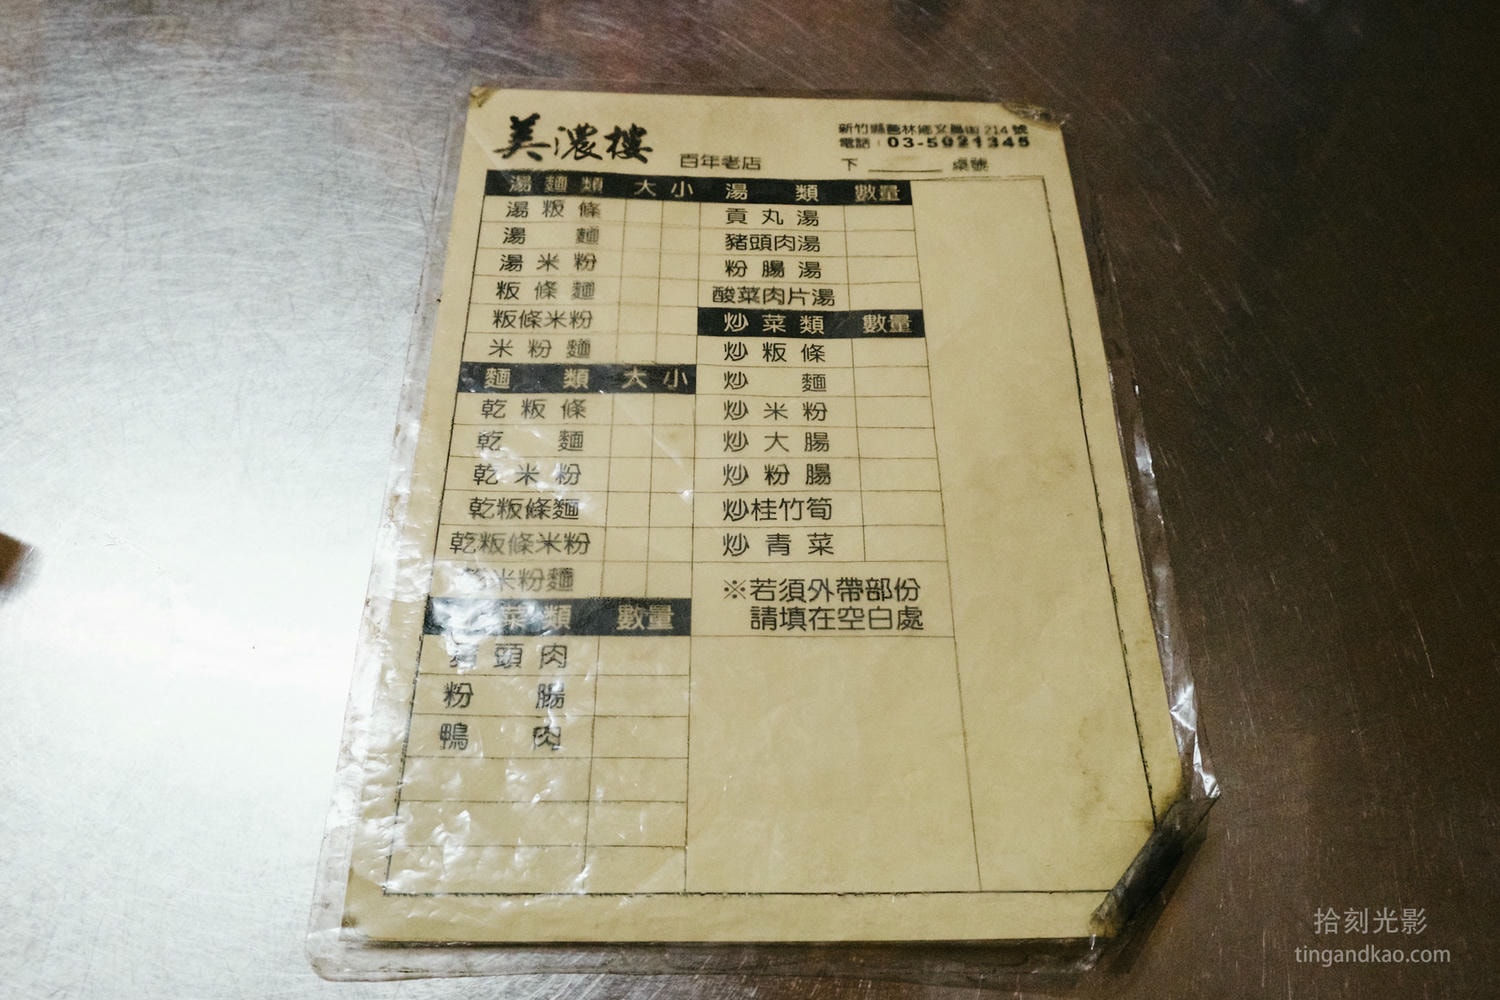 美濃樓
百年老店
新竹縣芎林鄉文昌街 214 號
電話：03-5921345
下 ______ 桌號
湯麵類 大 小
湯粄條
湯麵
湯米粉
粄條麵
粄條米粉
米粉麵
麵類 大 小
乾粄條
乾麵
乾米粉
乾粄條麵
乾粄條米粉
米粉麵
菜類 數量
豬頭肉
粉腸
鴨肉
湯類 數量
貢丸湯
豬頭肉湯
粉腸湯
酸菜肉片湯
炒菜類 數量
炒粄條
炒麵
炒米粉
炒大腸
炒粉腸
炒桂竹筍
炒青菜
※若須外帶部份
請填在空白處
拾刻光影
tingandkao.com